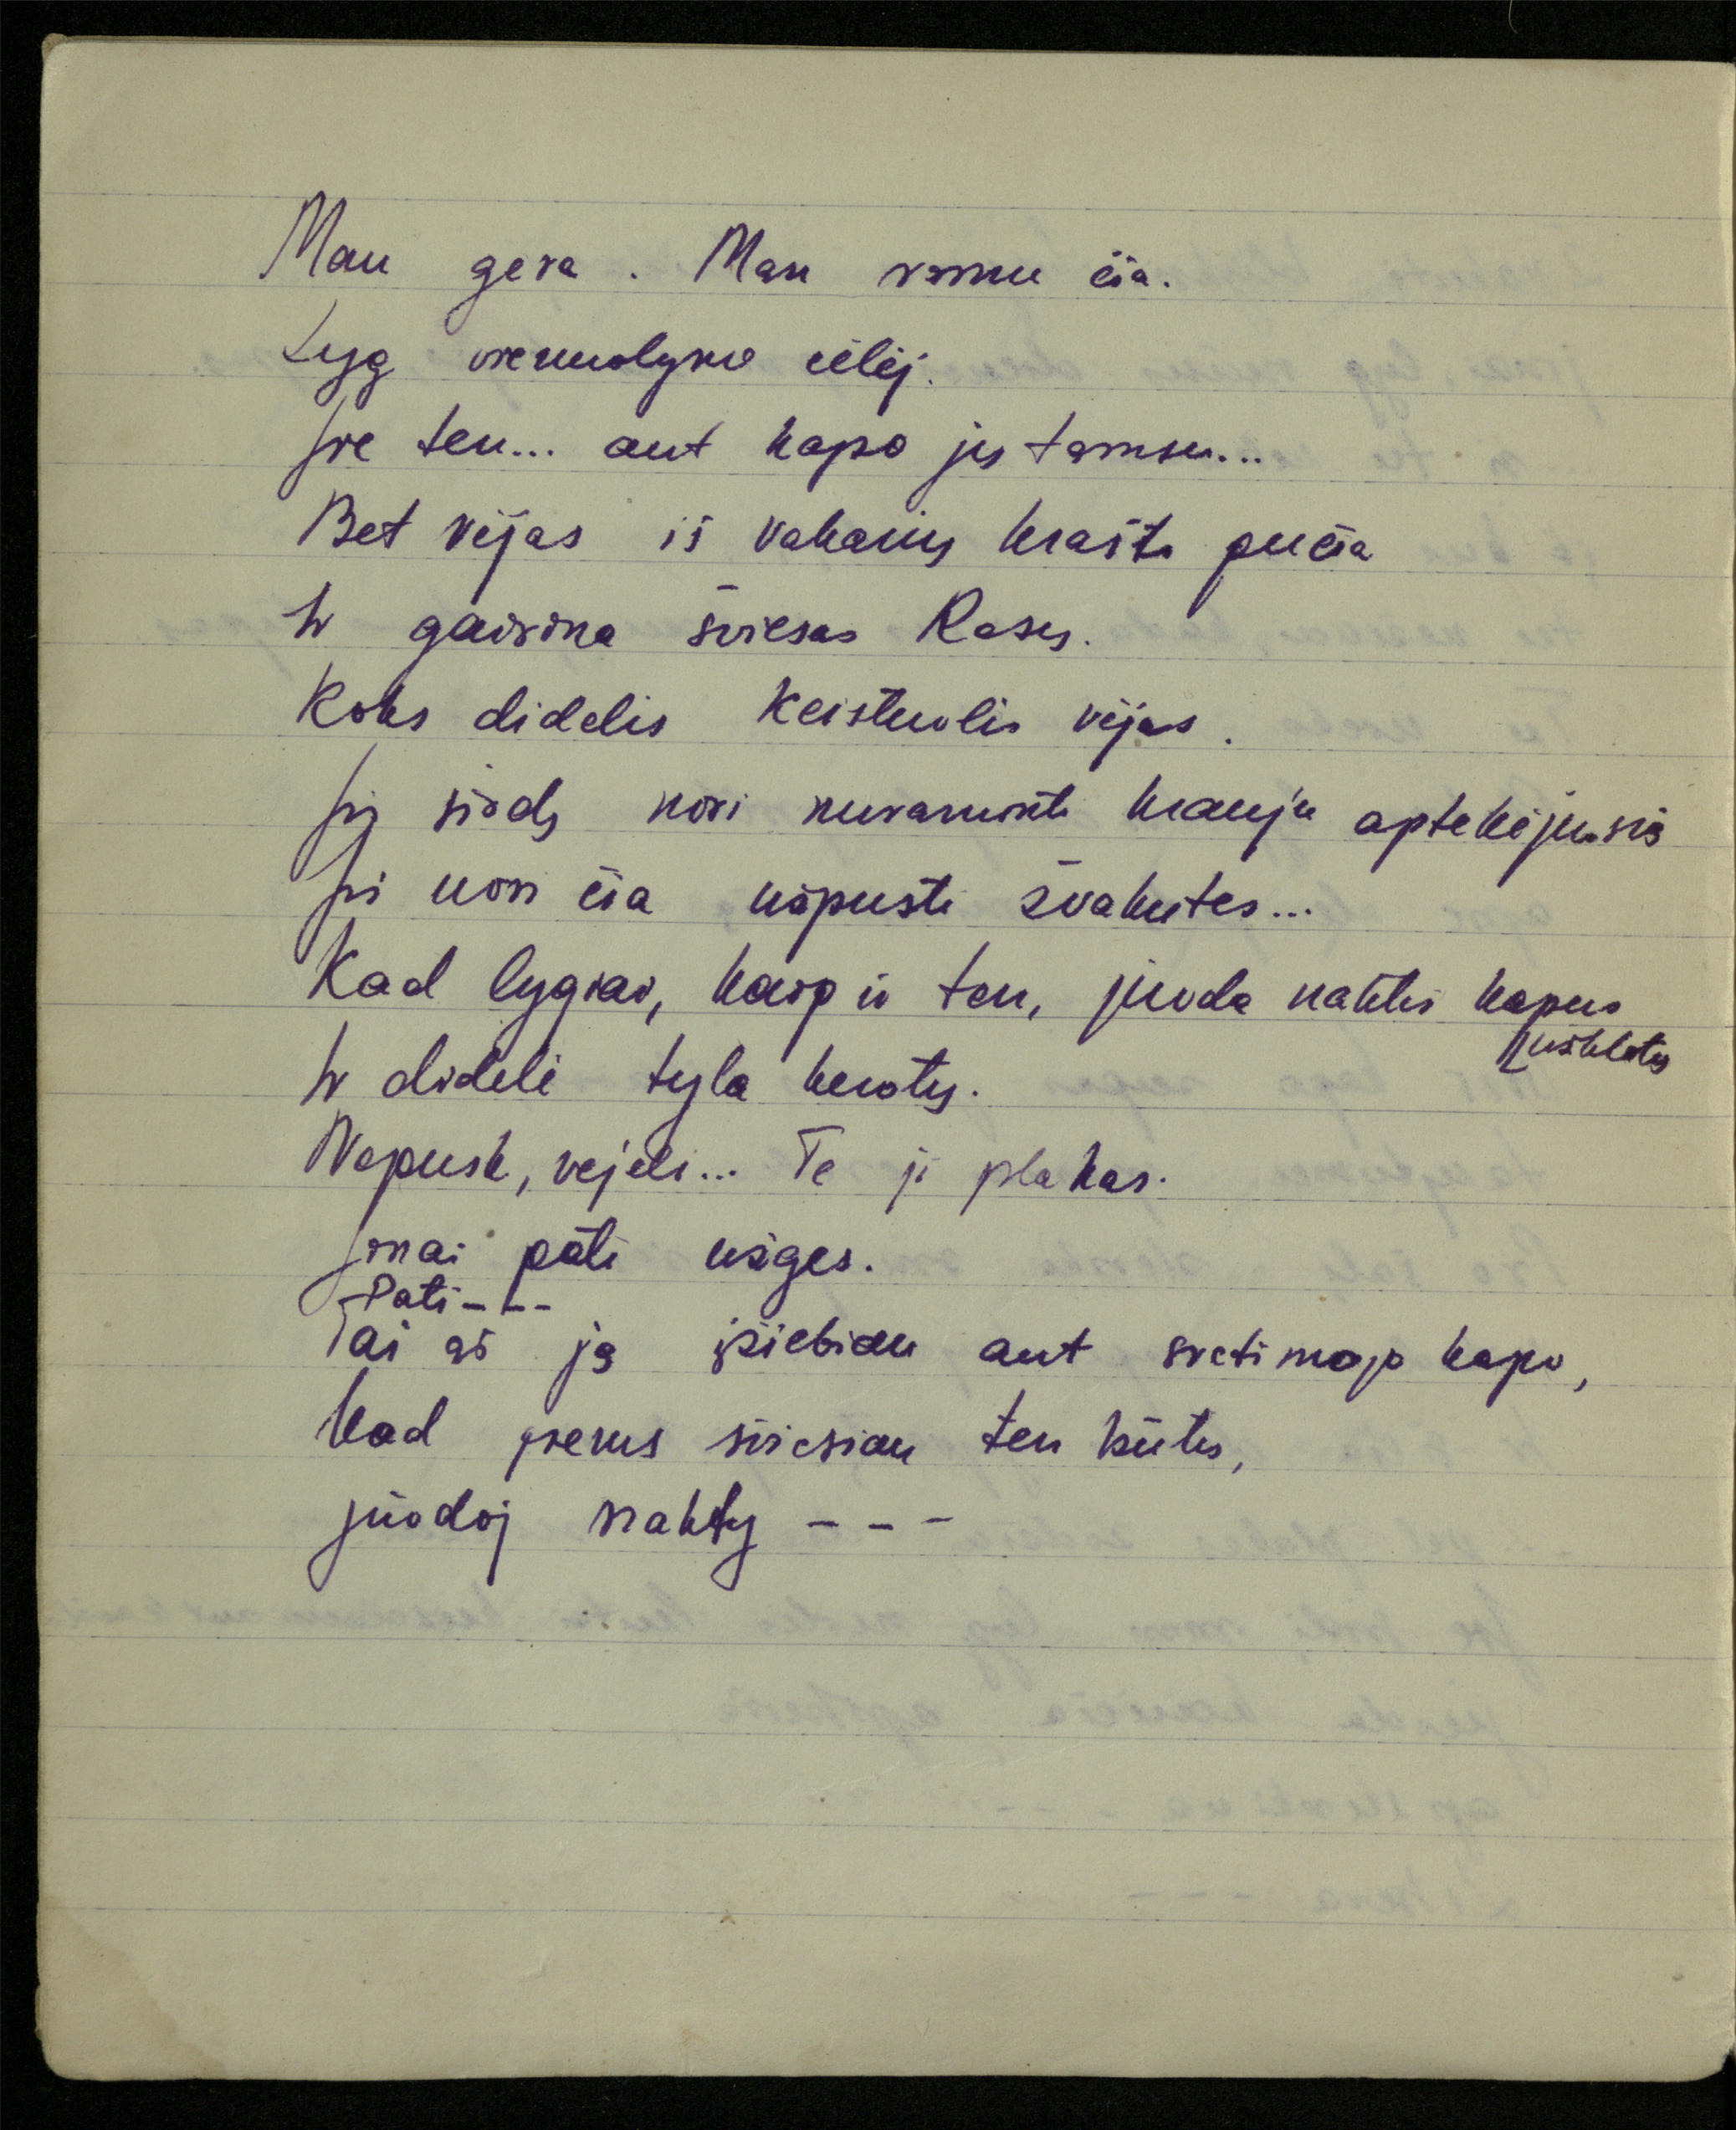 Man gera. Man ramu čia.
Lyg vienuolyno celėj.
Ire ten... ant kapo jų tamsu...
Bet vėjas iš vakarių krašto pučia
Ir gairina šviesas Rasų.
Koks didelis keistuolis vėjas.
Jis širdį nori nuraminti krauju aptekėjusią
Jis nori čia užpusti žvakutes...
Kad lygiai, kaip ir ten, juoda naktis kapus
užklotų
Ir dideli tyla kerotų.
Nepusk, vėjeli... Te ji plakas.
Jinai pati užges.
Pati - - -
Tai aš ją įžiebiau ant svetimojo kapo,
kad jiems šviesiau ten būtų,
juodoj nakty - - -